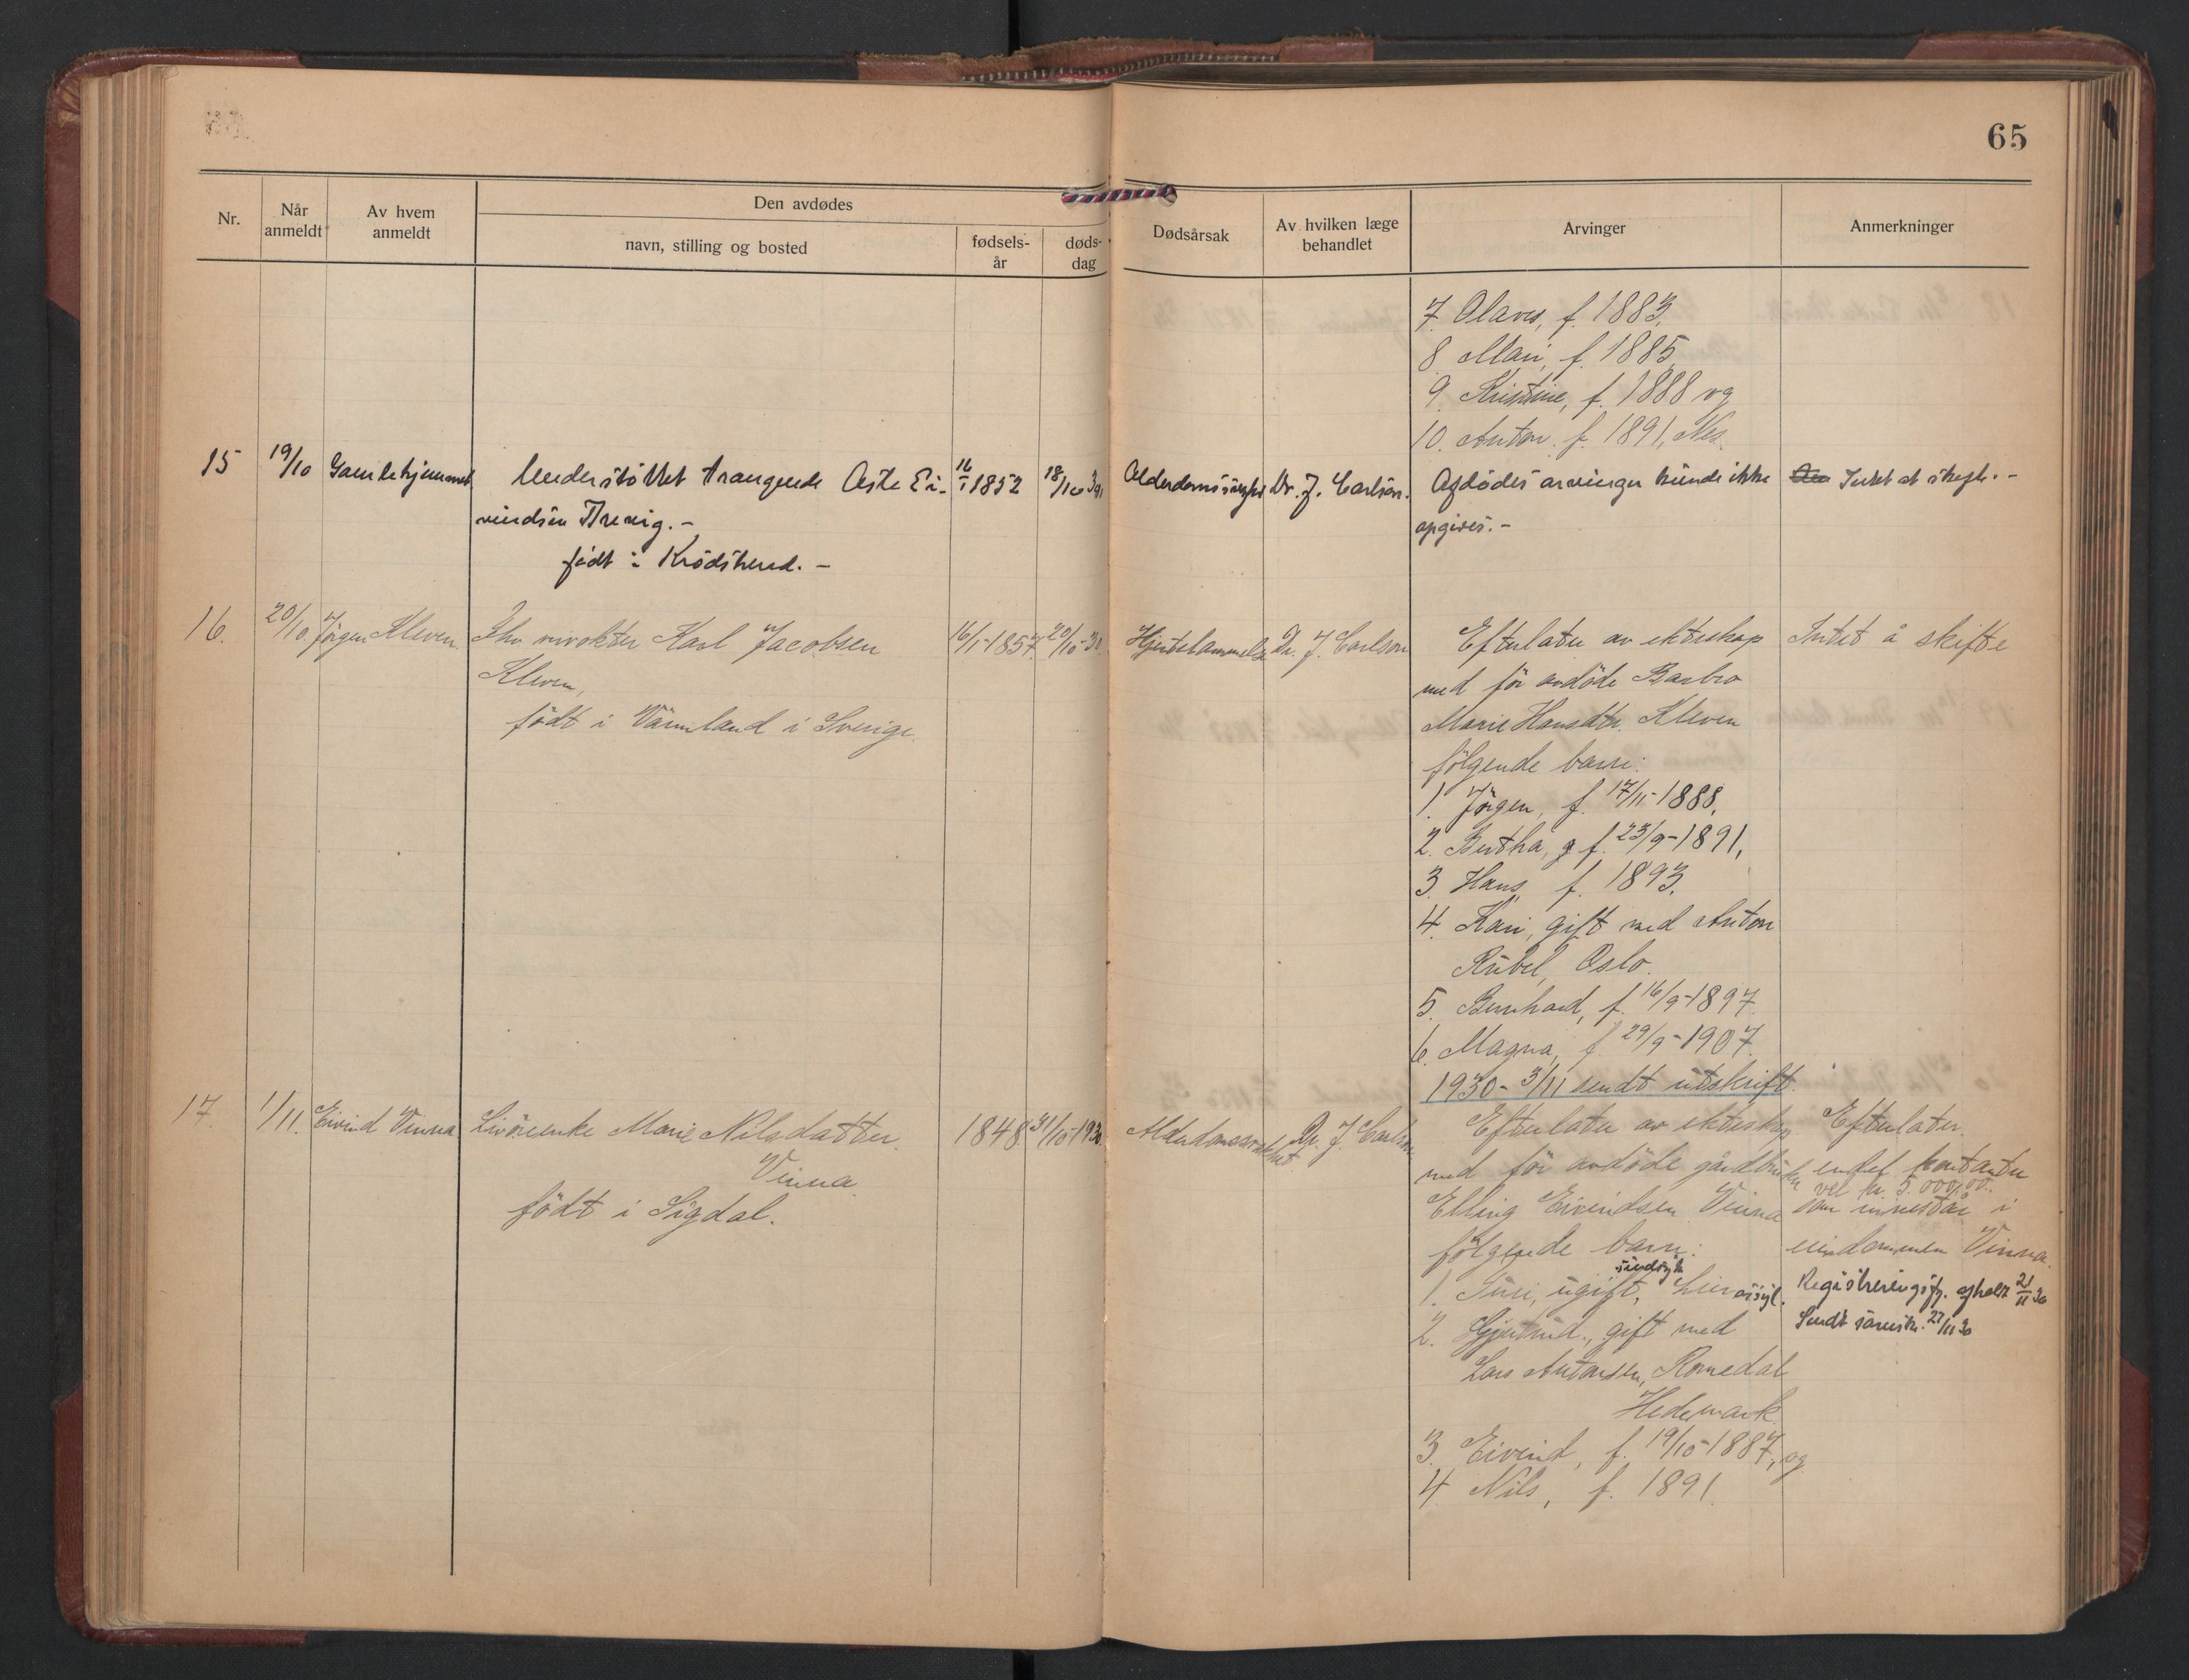 65
Nr.
Når anmeldt
Av hvem anmeldt
Den avdødes
navn, stilling og bosted
fødsels-år
døds-dag
Dødsårsak
Av hvilken læge behandlet
Arvinger
Anmerkninger
7. Olaves, f. 1883,
8. Mari, f. 1885
9. Kristine, f. 1888 og
10. Anton, f. 1891, Nes.
15
19/10
Gamlehjemmet
Understöttet trængende Aste Ei-
vindsen Brevig. -
födt i Krödsherad. -
16/1 1852
18/10 30
Alderdomssvaghet
Dr. J. Carlson.
Afdödes arvinger kunde ikke
opgives. -
Intet at skifte. -
16.
20/10.
Jörgen Kleven.
Fhv. Karl Jacobsen
Kleven,
födt i Värmland i Sverige.
16/1-1857.
20/10-30
Hjertelammelse
Dr. J. Carlson
Efterlater av ekteskap
med för avdöde Barbro
Marie Hansdtr. Kleven
følgende barn:
1. Jörgen, f. 17/11-1888,
2. Bertha, f. 23/9-1891,
3. Hans, f. 1893,
4. Kari, gift med Anton
Rubel, Oslo.
5. Bernhard, f. 16/9-1897
6. Magna, f. 29/9-1907.
1930- 3/11 sendt utskrift.
Intet å skifte
17.
1/11.
Eivind Vinna
Livöreenke Marie Nilsdatter
Vinna
födt i Sigdal.
1848
31/10-1930
Alderdomssvakhet
Dr. J. Carlson
Efterlater av ekteskap
med för avdöde gårdbruker
Elling Eivindsen Vinna
følgende barn:
sindsyk
1. Turi, ugift, Lier asyl.
2. Gjertrud, gift med
Lars Antonsen, Romedal
Hedemark.
3. Eivind, f. 19/10-1887, og
4. Nils, f. 1891.
Efterlater
endel kontanter
vel kr. 5.000,00.
som innestår i
eiendommen Vinna.
Registreringsf. afholdt 21/11 30
Sendt 27/11 30